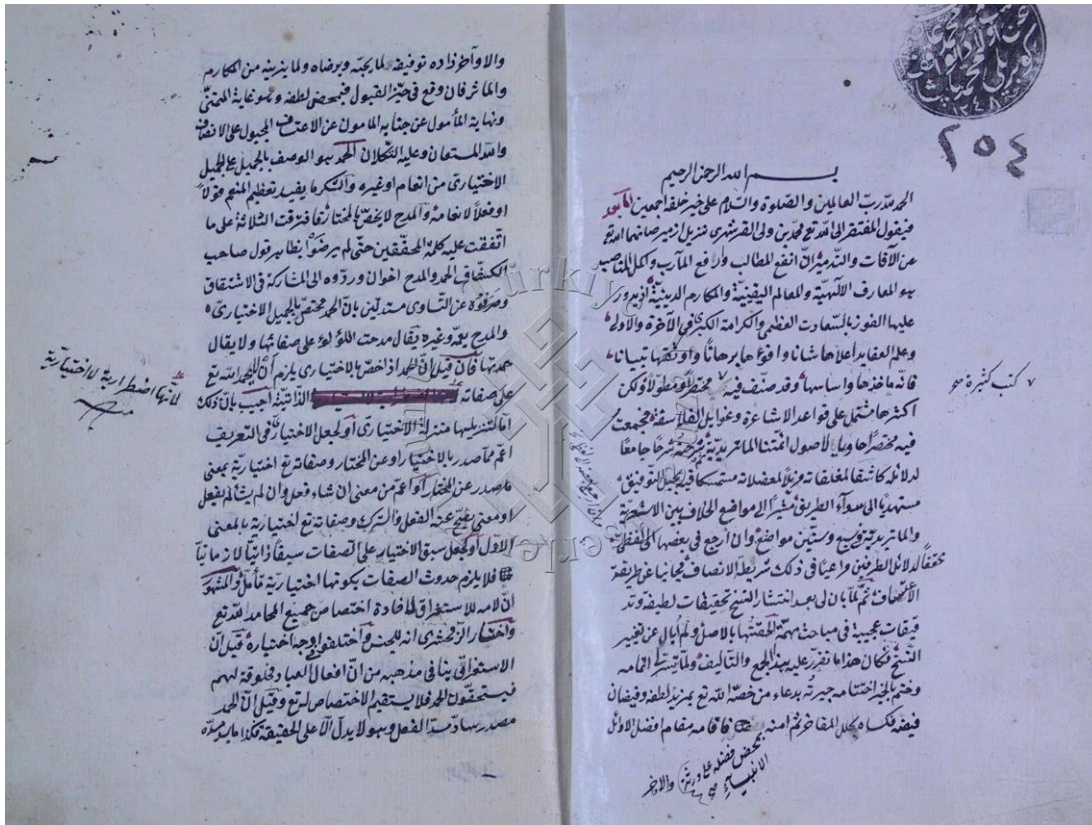 ٢٥٤
بسم الله الرحمن الرحيم
الحمد لله رب العالمين والصلوة والسلام على خير خلقه اجمعين اما بعد
فيقول المفتقر الى الله تع محمد بن ولى القرشهرى نزيل ازمير صانهما الله تع
عن الآفات والتدمير ان انفع المطالب وارفع المآرب واكمل المناصب
هو المعارف الآلهية والمعالم اليقينية والمكارم الدينية اذ يدور
عليها الفوز بالسعادت العظمى والكرامة الكبرى فى الآخرة والاولى
وعلم العقايد اعلاها شانا واقوها برهانا واوثقها تبيانا
فانه ماخذها واساسها وقد صنف فيه مختصرا ومطولا ولكن
كتب كثيرة صح
اكثرها مشتمل على قواعد الاشاعرة وغوايل الفلاسفة فجمعت
فيه مختصرا حاويا لاصول ائمتنا الماتريدية وشرحته شرحا جامعا
لدلائله كاشفا لمغلقاته مزيلا لمعضلاته مستمسكا فيه بحبل التوفيق
مستهديا الى سوآء الطريق مشيرا الى مواضع الخلاف بين الاشعرية
والماتريدية وستين مواضع وان ارجع فى بعضها الى اللفظى
محققا لدلائل الطرفين وراعيا فى ذلك شريطة الانصاف مجانبا عن طريقة
الاعتساف ثم لما بان لى بعد انتشار النسخ تحقيقات لطيفة وتد
قيقات عجيبة فى مباحث مهمة الحقتها بالاصل ولم ابال عن تغيير
النسخ فكان هذا ما تقرر عليه هذا الجمع والتاليف ولما تيسر اتمامه
وختم بالخير اختتامه بدعاء من خصه الله تع بمزيد لطفه وفيضان
فيضه فكساه بحلل المفاخر ثم امنه فاقامه مقام افضل الاوائل
بمحض فضله على ورثة
الانبياء صح
والاواخر
والاواخر زاده توفيقه لما يحبه ويرضاه ولما يزينه من المكارم
والماثر فان وقع فى حيز القبول فبمحض لطفه وهو غاية المتمنى
ونهاية المأمول عن جنابه المامون عن الاعتساف المجبول على الانصاف
والله المستعان وعليه التكلان الحمد هو الوصف بالجميل على الجميل
الاختيارى من انعام او غيره والشكر ما يفيد تعظيم المنعم قولا
او فعلا لانعامه والمدح لا يختص بالمختار فافترقت الثلاثة على ما
اتفقت عليه كلمة المحققين حتى لم يرضوا بظاهر قول صاحب
الكشاف الحمد والمدح اخوان وردوه الى المشاركة فى الاشتقاق
وصرفوه عن التساوى مستدلين بان الحمد مختص بالجميل الاختيارى
والمدح يعمه وغيره يقال مدحت اللؤلؤ على صفائها ولا يقال
حمدتها فان قيل ان الحمد اذا خص بالاختيارى يلزم ان لا يحمد الله تع
على صفاته الذاتية اجيب بان ذلك
لانها اضطرارية لا اختيارية
منه
اما لتنزيلها منزلة الاختيارى او لجعل الاختيارى فى التعريف
اعم مما صدر بالاختيار او عن المختار وصفاته تع اختيارية بمعنى
ما صدر عن المختار او اعم من معنى ان شاء فعل وان لم يشأ لم يفعل
او معنى يصح عنه الفعل والترك وصفاته تع اختيارية بالمعنى
الاول او لجعل سبق الاختيار على الصفات سبقا ذاتيا لا زمانيا
فلا يلزم حدوث الصفات بكونها اختيارية تأمل والمشهور
ان لامه للاستغراق لافادة اختصاص جميع المحامد لله تع
واختار الزمخشرى انه للجنس واختلفوا فى وجه اختياره قيل ان
الاستغراق ينافى مذهبه من ان افعال العباد مخلوقة لهم
فيستحقون الحمد فلا يستقيم الاختصاص له تع وقيل ان الحمد
مصدر ساد مسد الفعل وهو لا يدل الا على الحقيقة فكذا ما يسد مسده